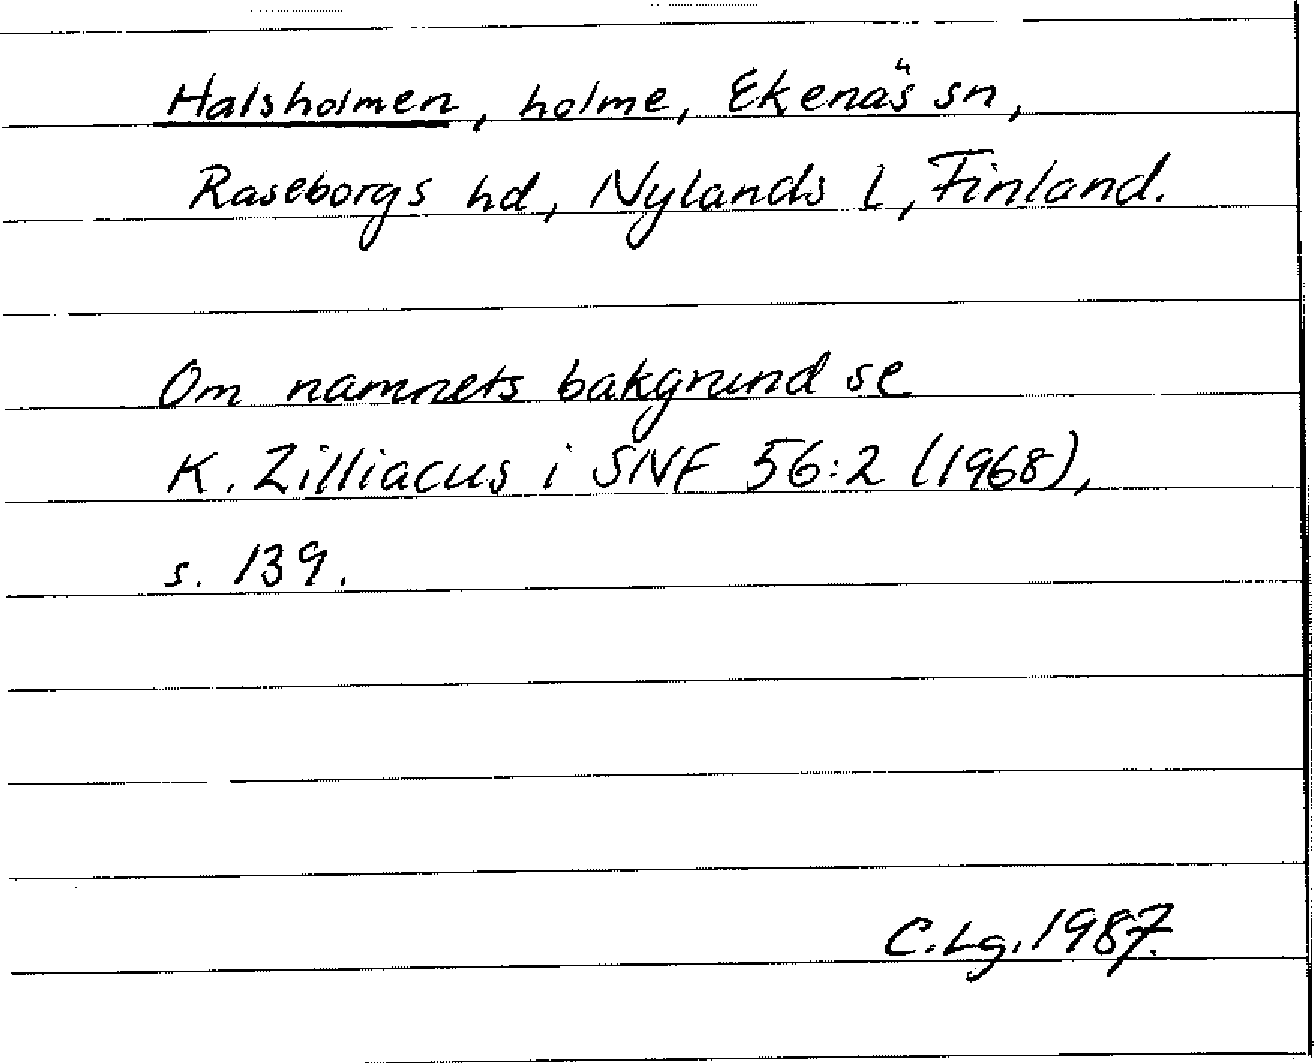 Halsholmen, holme, Ekenäs sn,
Raseborgs hd, Nylands l, Finland.
Om namnets bakgrund se
K. Zilliacus i SNF 56:2 (1968),
s. 139.
C.Lg. 1987.